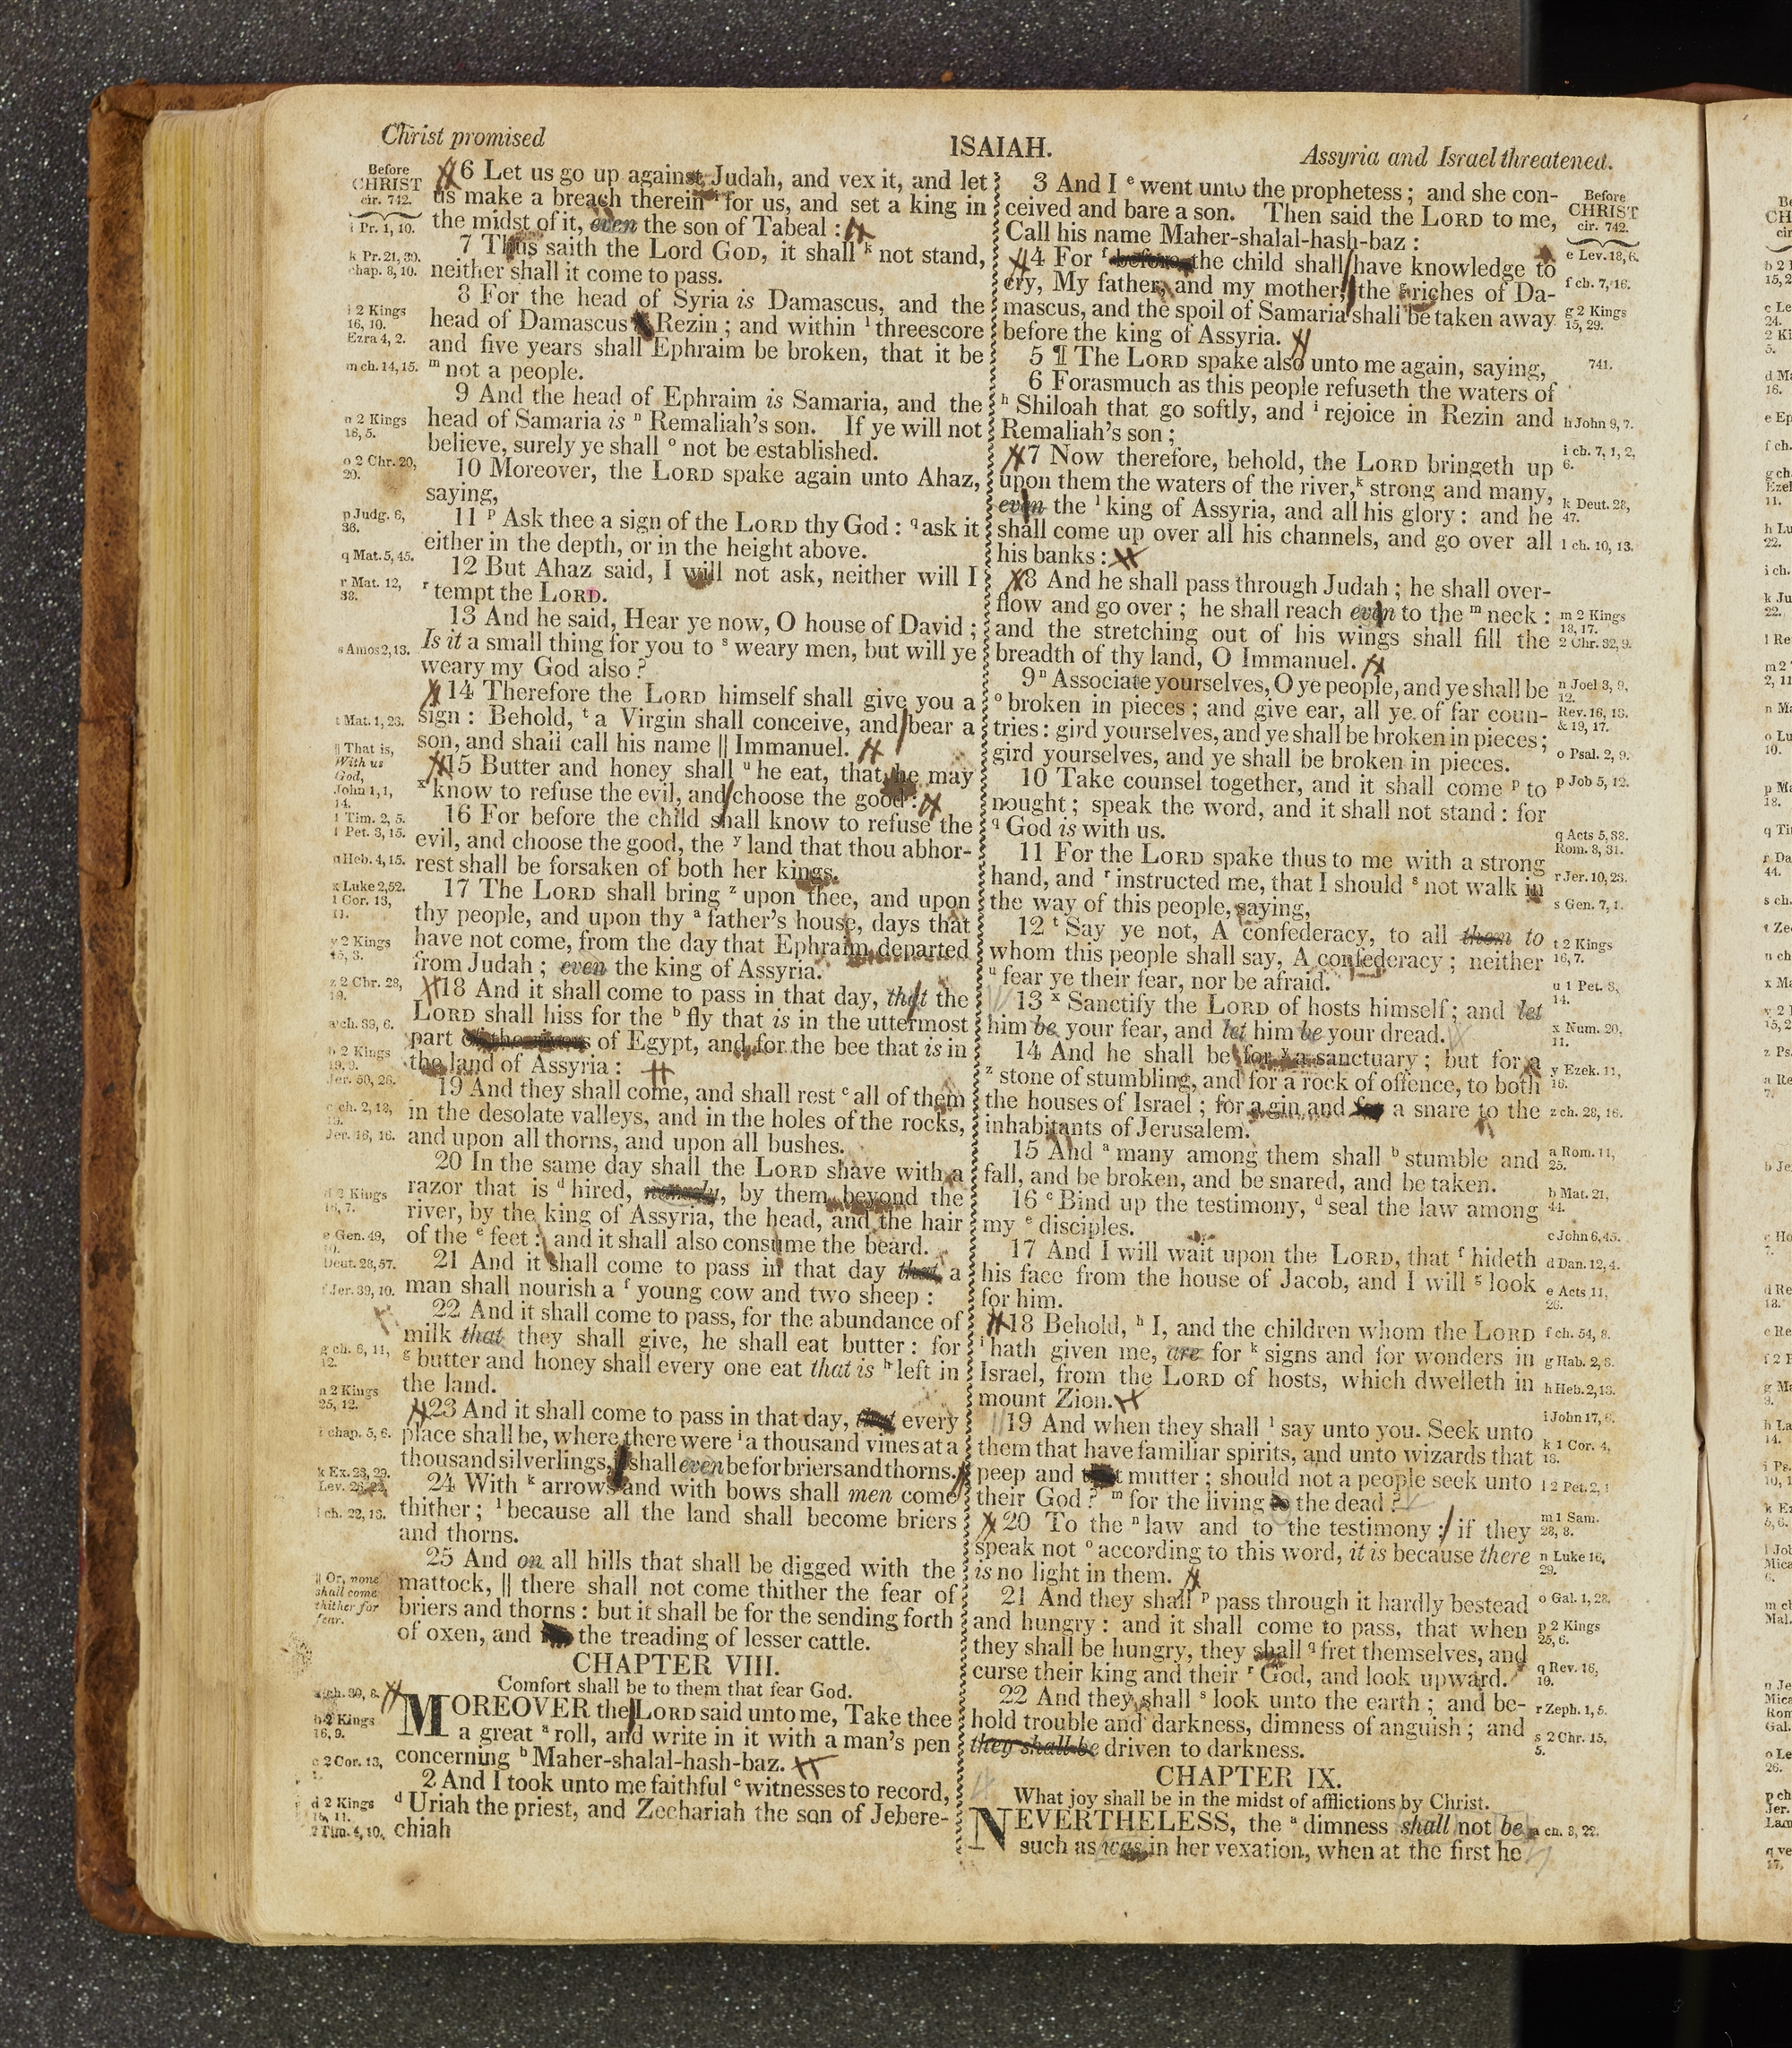 Christ promised
ISAIAH.
Assyria and Israel threatened.
Before
CHRIST
cir. 742.
i Pr. 1, 10.
k Pr. 21, 30.
chap. 8, 10.
l 2 Kings
16, 10.
Ezra 4, 2.
m ch. 14, 15.
n 2 Kings
16, 5.
o 2 Chr. 20,
20.
p Judg. 6,
36.
q Mat. 5, 45.
r Mat. 12,
38.
s Amos 2, 13.
t Mat. 1, 23.
|| That is,
With us
God,
John 1, 1,
14.
1 Tim. 2, 5.
1 Pet. 3, 15.
u Heb. 4, 15.
x Luke 2, 52.
1 Cor. 13,
11.
y 2 Kings
15, 3.
z 2 Chr. 28,
19.
a ch. 39, 6.
b 2 Kings
19, 9.
Jer. 50, 26.
c ch. 2, 18,
19.
Jer. 16, 16.
d 2 Kings
16, 7.
e Gen. 49,
10.
Deut. 28, 57.
f Jer. 39, 10.
g ch. 6, 11,
12.
h 2 Kings
25, 12.
i chap. 5, 6.
k Ex. 23, 29.
Lev. 26, 22.
l ch. 22, 13.
|| Or, none
shall come
thither for
fear.
a ch. 30, 8.
b 2 Kings
16, 9.
c 2 Cor. 13,
d 2 Kings
16, 11.
2 Tim. 4, 10.
6 Let us go up against Judah, and vex it, and let
us make a breach therein i for us, and set a king in
the midst of it, even the son of Tabeal :
7 Thus saith the Lord GOD, it shall k not stand,
neither shall it come to pass.
8 For the head of Syria is Damascus, and the
head of Damascus Rezin ; and within l threescore
and five years shall Ephraim be broken, that it be
m not a people.
9 And the head of Ephraim is Samaria, and the
head of Samaria is n Remaliah's son. If ye will not
believe, surely ye shall o not be established.
10 Moreover, the LORD spake again unto Ahaz,
saying,
11 p Ask thee a sign of the LORD thy God : q ask it
either in the depth, or in the height above.
12 But Ahaz said, I will not ask, neither will I
r tempt the LORD.
13 And he said, Hear ye now, O house of David ;
Is it a small thing for you to s weary men, but will ye
weary my God also ?
14 Therefore the LORD himself shall give you a
sign : Behold, t a Virgin shall conceive, and bear a
son, and shall call his name || Immanuel.
15 Butter and honey shall u he eat, that he may
x know to refuse the evil, and choose the good :
16 For before the child shall know to refuse the
evil, and choose the good, the y land that thou abhor-
rest shall be forsaken of both her kings.
17 The LORD shall bring z upon thee, and upon
thy people, and upon thy a father's house, days that
have not come, from the day that Ephraim departed
from Judah ; even the king of Assyria.
18 And it shall come to pass in that day, that the
LORD shall hiss for the b fly that is in the uttermost
part of the rivers of Egypt, and for the bee that is in
the land of Assyria :
19 And they shall come, and shall rest c all of them
in the desolate valleys, and in the holes of the rocks,
and upon all thorns, and upon all bushes.
20 In the same day shall the LORD shave with a
razor that is d hired, namely, by them beyond the
river, by the king of Assyria, the head, and the hair
of the e feet : and it shall also consume the beard.
21 And it shall come to pass in that day that a
man shall nourish a f young cow and two sheep :
22 And it shall come to pass, for the abundance of
milk that they shall give, he shall eat butter : for
g butter and honey shall every one eat that is h left in
the land.
23 And it shall come to pass in that day, that every
place shall be, where there were i a thousand vines at a
thousand silverlings, shall even be for briers and thorns.
24 With k arrows and with bows shall men come
thither ; l because all the land shall become briers
and thorns.
25 And on all hills that shall be digged with the
mattock, || there shall not come thither the fear of
briers and thorns : but it shall be for the sending forth
of oxen, and the treading of lesser cattle.
CHAPTER VIII.
Comfort shall be to them that fear God.
MOREOVER the LORD said unto me, Take thee
a great a roll, and write in it with a man's pen
concerning b Maher-shalal-hash-baz.
2 And I took unto me faithful c witnesses to record,
d Uriah the priest, and Zechariah the son of Jebere-
chiah
3 And I e went unto the prophetess ; and she con-
ceived and bare a son. Then said the LORD to me,
Call his name Maher-shalal-hash-baz :
4 For f before the child shall have knowledge to
cry, My father, and my mother, the g riches of Da-
mascus, and the spoil of Samaria shall be taken away
before the king of Assyria.
5 ¶ The LORD spake also unto me again, saying,
6 Forasmuch as this people refuseth the waters of
h Shiloah that go softly, and i rejoice in Rezin and
Remaliah's son ;
7 Now therefore, behold, the LORD bringeth up
upon them the waters of the river, k strong and many,
even the l king of Assyria, and all his glory : and he
shall come up over all his channels, and go over all
his banks :
8 And he shall pass through Judah ; he shall over-
flow and go over ; he shall reach even to the m neck :
and the stretching out of his wings shall fill the
breadth of thy land, O Immanuel.
9 n Associate yourselves, O ye people, and ye shall be
o broken in pieces ; and give ear, all ye of far coun-
tries : gird yourselves, and ye shall be broken in pieces ;
gird yourselves, and ye shall be broken in pieces.
10 Take counsel together, and it shall come p to
nought ; speak the word, and it shall not stand : for
q God is with us.
11 For the LORD spake thus to me with a strong
hand, and r instructed me, that I should s not walk in
the way of this people, saying,
12 t Say ye not, A confederacy, to all them to
whom this people shall say, A confederacy ; neither
u fear ye their fear, nor be afraid.
13 x Sanctify the LORD of hosts himself ; and let
him be your fear, and let him be your dread.
14 And he shall be for y a sanctuary ; but for a
z stone of stumbling, and for a rock of offence, to both
the houses of Israel ; for a gin and for a snare to the
inhabitants of Jerusalem.
15 And a many among them shall b stumble and
fall, and be broken, and be snared, and be taken.
16 c Bind up the testimony, d seal the law among
my e disciples.
17 And I will wait upon the LORD, that f hideth
his face from the house of Jacob, and I will g look
for him.
18 Behold, h I, and the children whom the LORD
i hath given me, are for k signs and for wonders in
Israel, from the LORD of hosts, which dwelleth in
mount Zion.
19 And when they shall l say unto you. Seek unto
them that have familiar spirits, and unto wizards that
peep and that mutter ; should not a people seek unto
their God ? m for the living to the dead ?
20 To the n law and to the testimony : if they
speak not o according to this word, it is because there
is no light in them.
21 And they shall p pass through it hardly bestead
and hungry : and it shall come to pass, that when
they shall be hungry, they shall q fret themselves, and
curse their king and their r God, and look upward.
22 And they shall s look unto the earth ; and be-
hold trouble and darkness, dimness of anguish ; and
they shall be driven to darkness.
CHAPTER IX.
What joy shall be in the midst of afflictions by Christ.
NEVERTHELESS, the a dimness shall not be
such as was in her vexation, when at the first he
Before
CHRIST
cir. 742.
e Lev. 18, 6.
f ch. 7, 16.
g 2 Kings
15, 29.
741.
h John 9, 7.
i ch. 7, 1, 2,
6.
k Deut. 28,
47.
l ch. 10, 13.
m 2 Kings
18, 17.
2 Chr. 32, 9.
n Joel 3, 9,
12.
Rev. 16, 18.
& 19, 17.
o Psal. 2, 9.
p Job 5, 12.
q Acts 5, 38.
Rom. 8, 31.
r Jer. 10, 23.
s Gen. 7, 1.
t 2 Kings
16, 7.
u 1 Pet. 3,
14.
x Num. 20,
11.
y Ezek. 11,
16.
z ch. 28, 16.
a Rom. 11,
25.
b Mat. 21,
44.
c John 6, 45.
d Dan. 12, 4.
e Acts 11,
26.
f ch. 54, 8.
g Hab. 2, 3.
h Heb. 2, 13.
i John 17, 6.
k 1 Cor. 4,
13.
l 2 Pet. 2, 1
m 1 Sam.
28, 8.
n Luke 16,
29.
o Gal. 1, 28.
p 2 Kings
25, 6.
q Rev. 16,
19.
r Zeph. 1, 5.
s 2 Chr. 15,
5.
a ch. 8, 22.